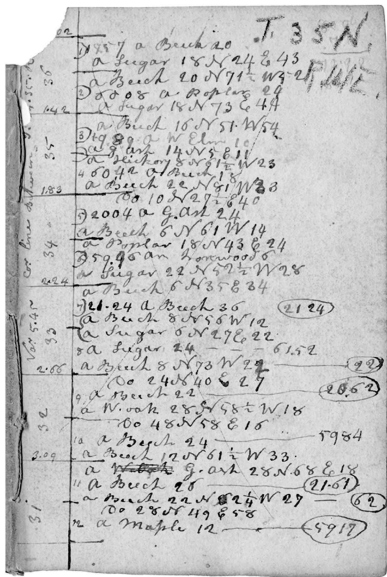 T. 35 N.
1857 a Beech 20
a Sugar 18 N 24 E 43
a Beech 20 N 71½ W 52
a Poplar 24
a Sugar 18 N 73 E 44
1.42
a Beech 16 N 51 W 54
a W Elm 10
a G. Ash 14
a Hickory 8 N W 23
4 6042 a Beech 18
1.83
a Beech 22 N 81 W 33
Do 10 N 27½ E 40
5 2004 a G. Ash 24
a Beech 6 N 61 W 14
a Poplar 18 N 43 E 24
an Ironwood 6
a Sugar 22 N 52½ W 28
2.24
a Beech 6 N 35 E 34
7 21.24 a Beech 36 21 24
a Beech 8 N 56 W 12
a Sugar 6 N 27 E 22
8 a Sugar 24 6152
2.66
a Beech 8 N 73 W 22 22
Do 24 N 40 E 27
9 a Beech 22 20.62
a W. oak 28 N 58½ W 18
Do 48 N 58 E 16
10 a Beech 24 5984
3.09
a Beech 12 N 61½ W 33
a G. ash 28 N 68 E 18
11 a Beech 26 21.61
a Beech 22 N 24 W 27 62
Do 28 N 49 E 58
12 a Maple 12 5917
36
35
34
33
32
31